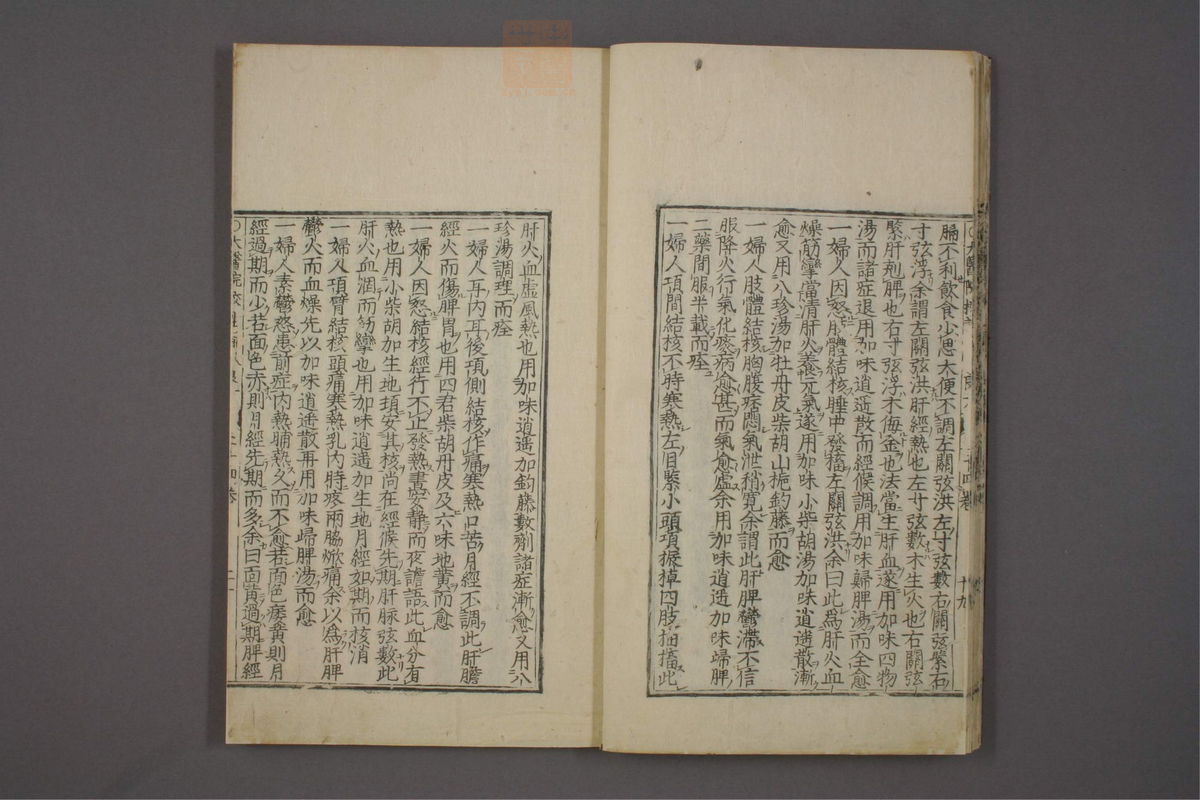 膈不利飲食少思大便不調左關弦洪左寸弦數右關弦緊右
寸弦浮余謂左關弦洪肝經熱也左寸弦數木生火也右關弦
緊肝剋脾也右寸弦浮木侮金也法當生肝血遂用加味四物
湯而諸症退用加味逍遥散而經候調用加味歸脾湯而全愈
一婦人因怒肢體結核腫中發搐左關弦洪余曰此爲肝火血
燥筋攣當清肝火養元氣遂用加味小柴胡湯加味逍遥散漸
愈又用八珍湯加牡丹皮柴胡山梔鈎藤而愈
一婦人肢體結核胸腹痞悶氣泄稍寬余謂此肝脾鬱滯不信
服降火行氣化痰病愈甚而氣愈虛余用加味逍遥加味歸脾
二藥間服半載而痊
一婦人項間結核不時寒熱左目緊小頭項振掉四肢抽搐此
肝火血虛風熱也用加味逍遥加鈎藤數劑諸症漸愈又用八
珍湯調理而痊
一婦人耳内耳後項側結核作痛寒熱口苦月經不調此肝膽
經火而傷脾胃也用四君柴胡丹皮及六味地黃而愈
一婦人因怒結核經行不止發熱晝安靜而夜譫語此血分有
熱也用小柴胡加生地頓安其核尚在經候先期肝脉弦數此
肝火血涸而筋攣也用加味逍遥加生地月經如期而核消
一婦人項臂結核頭痛寒熱乳内時疼兩脇焮痛余以爲肝脾
鬱火而血燥先以加味逍遥散再用加味歸脾湯而愈
一婦人素鬱怒患前症内熱晡熱久而不愈若面色痿黃則月
經過期而少若面色赤則月經先期而多余曰面黃過期脾經